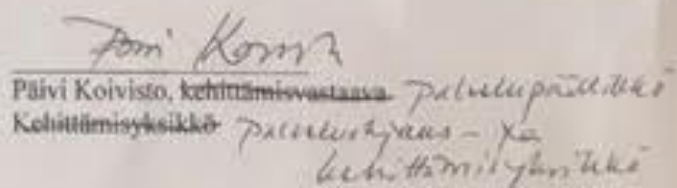 Päivi Koivisto, kehittämisvastaava palvelupäällikkö
Kehittämisyksikkö palveluohjaus- ja
kehittämisyksikkö